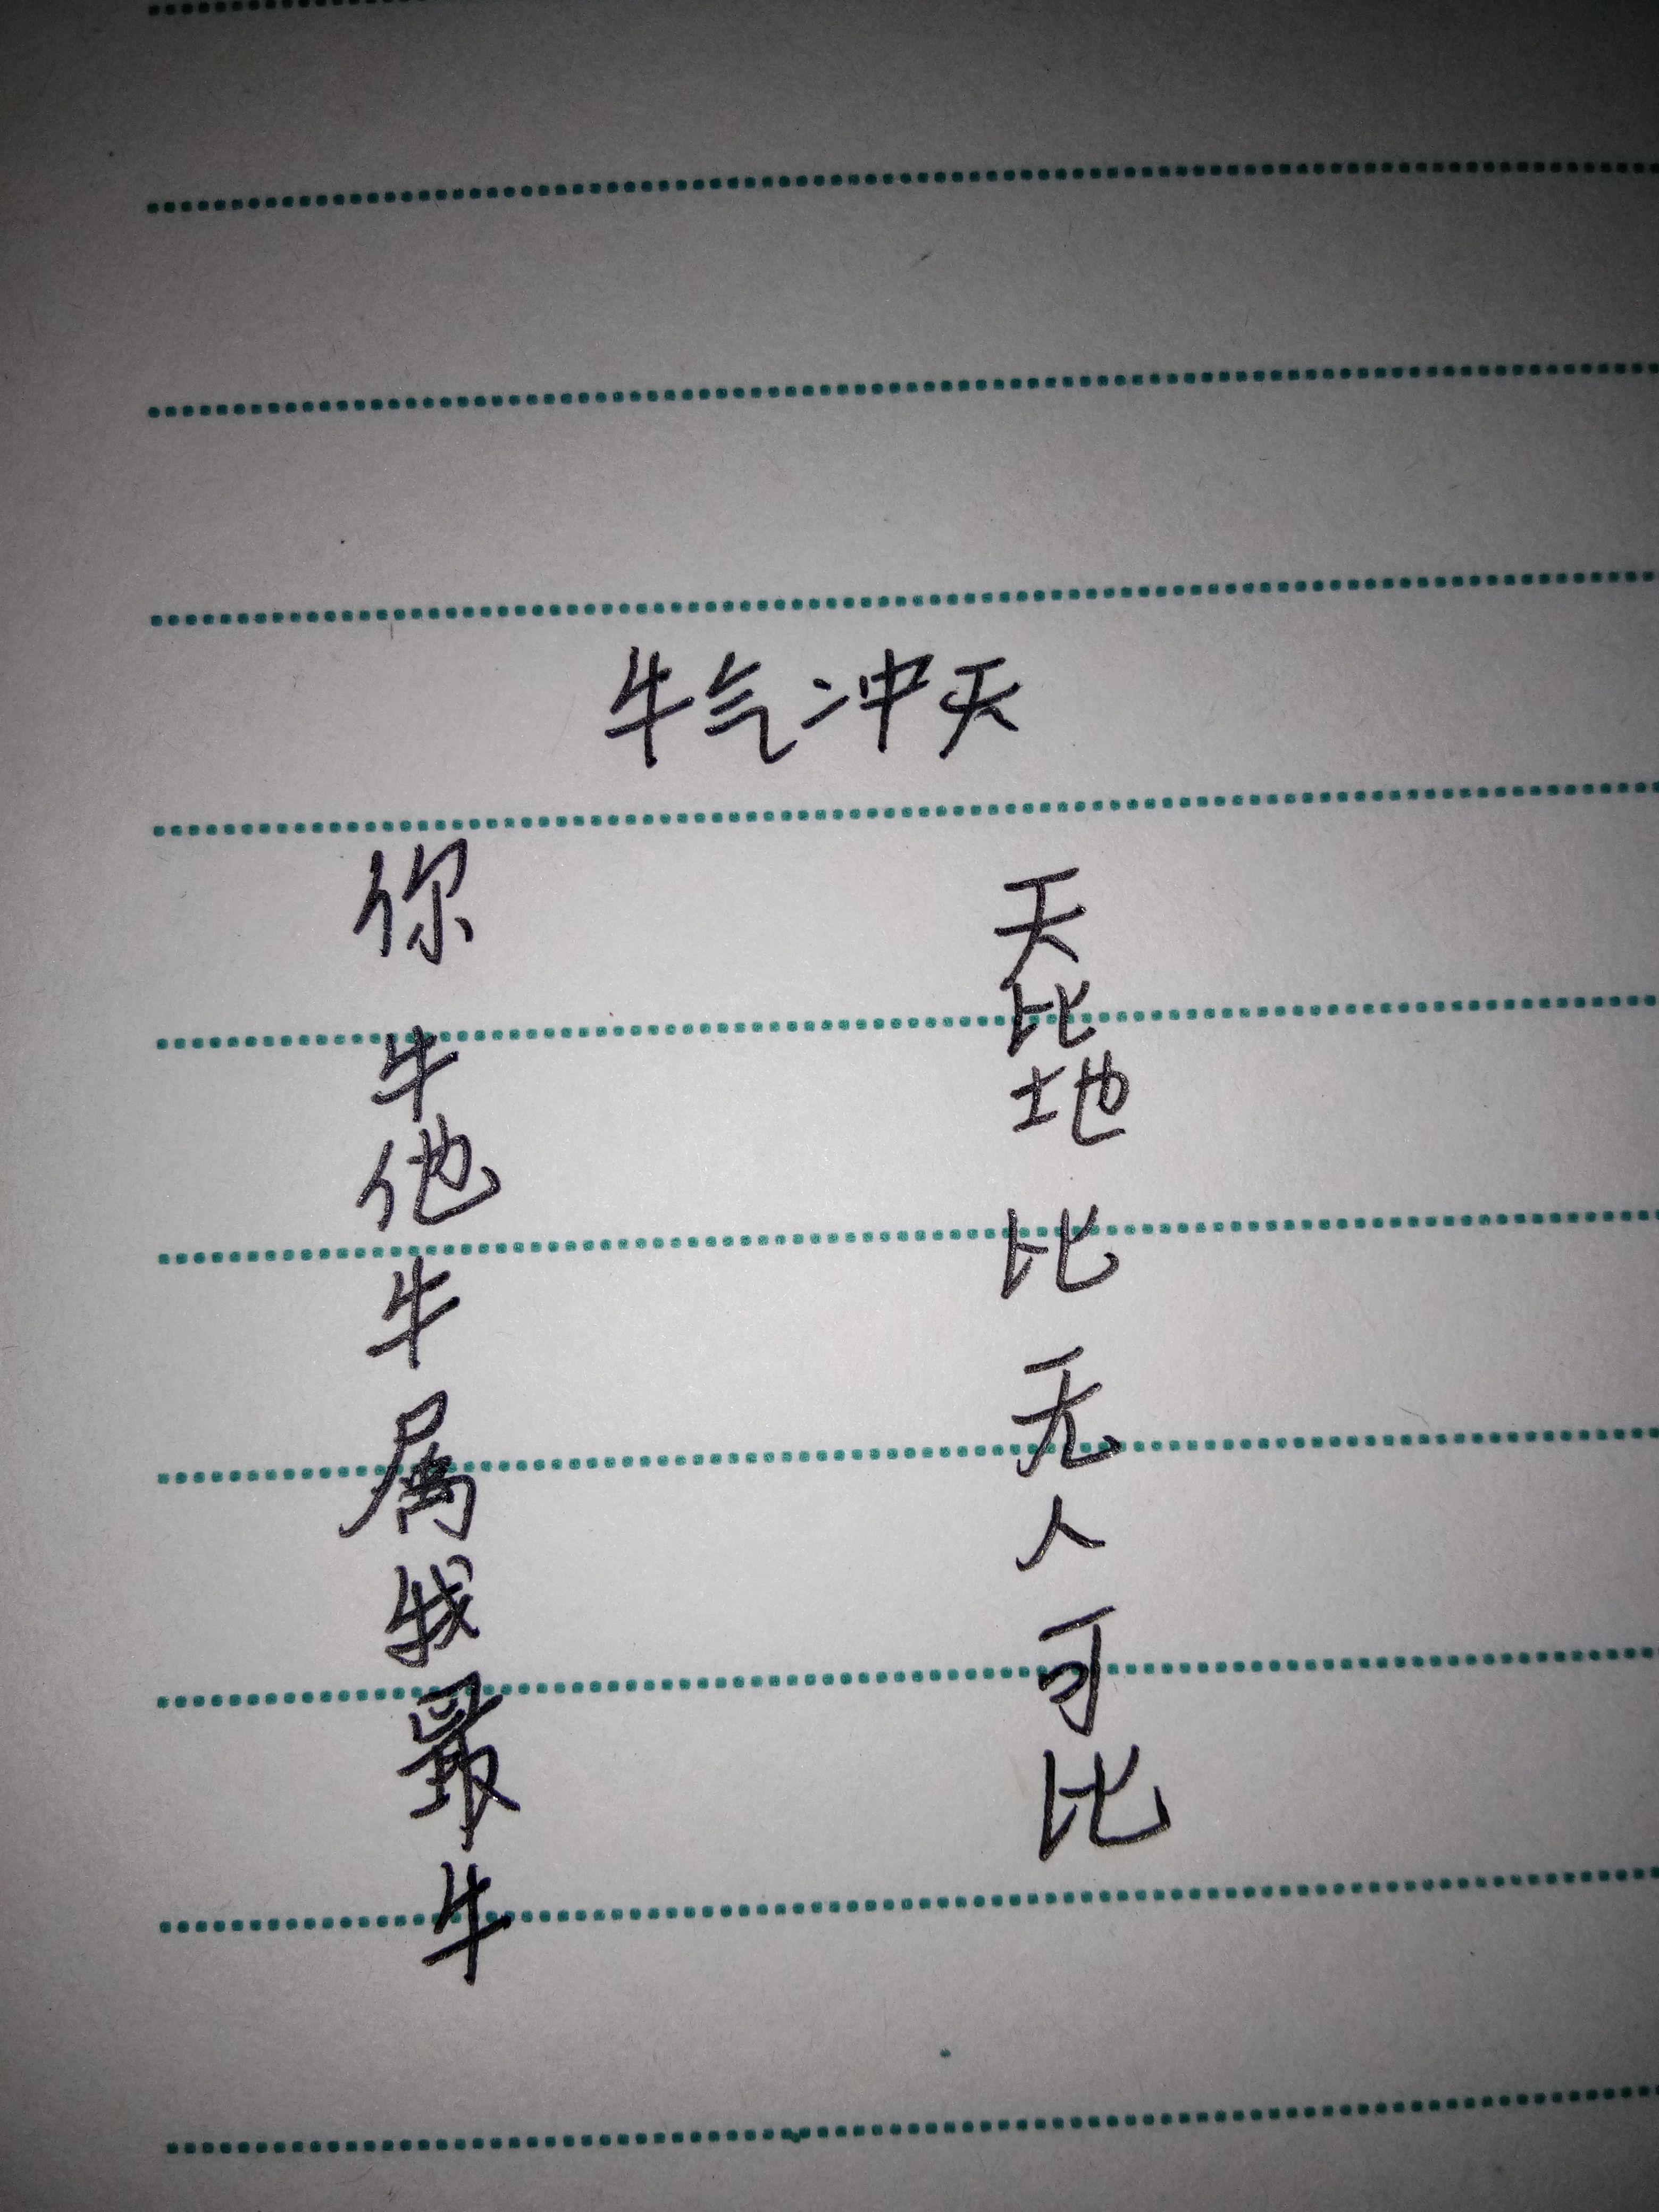 牛气冲天
天比地比无人可比
你牛他牛属我最牛